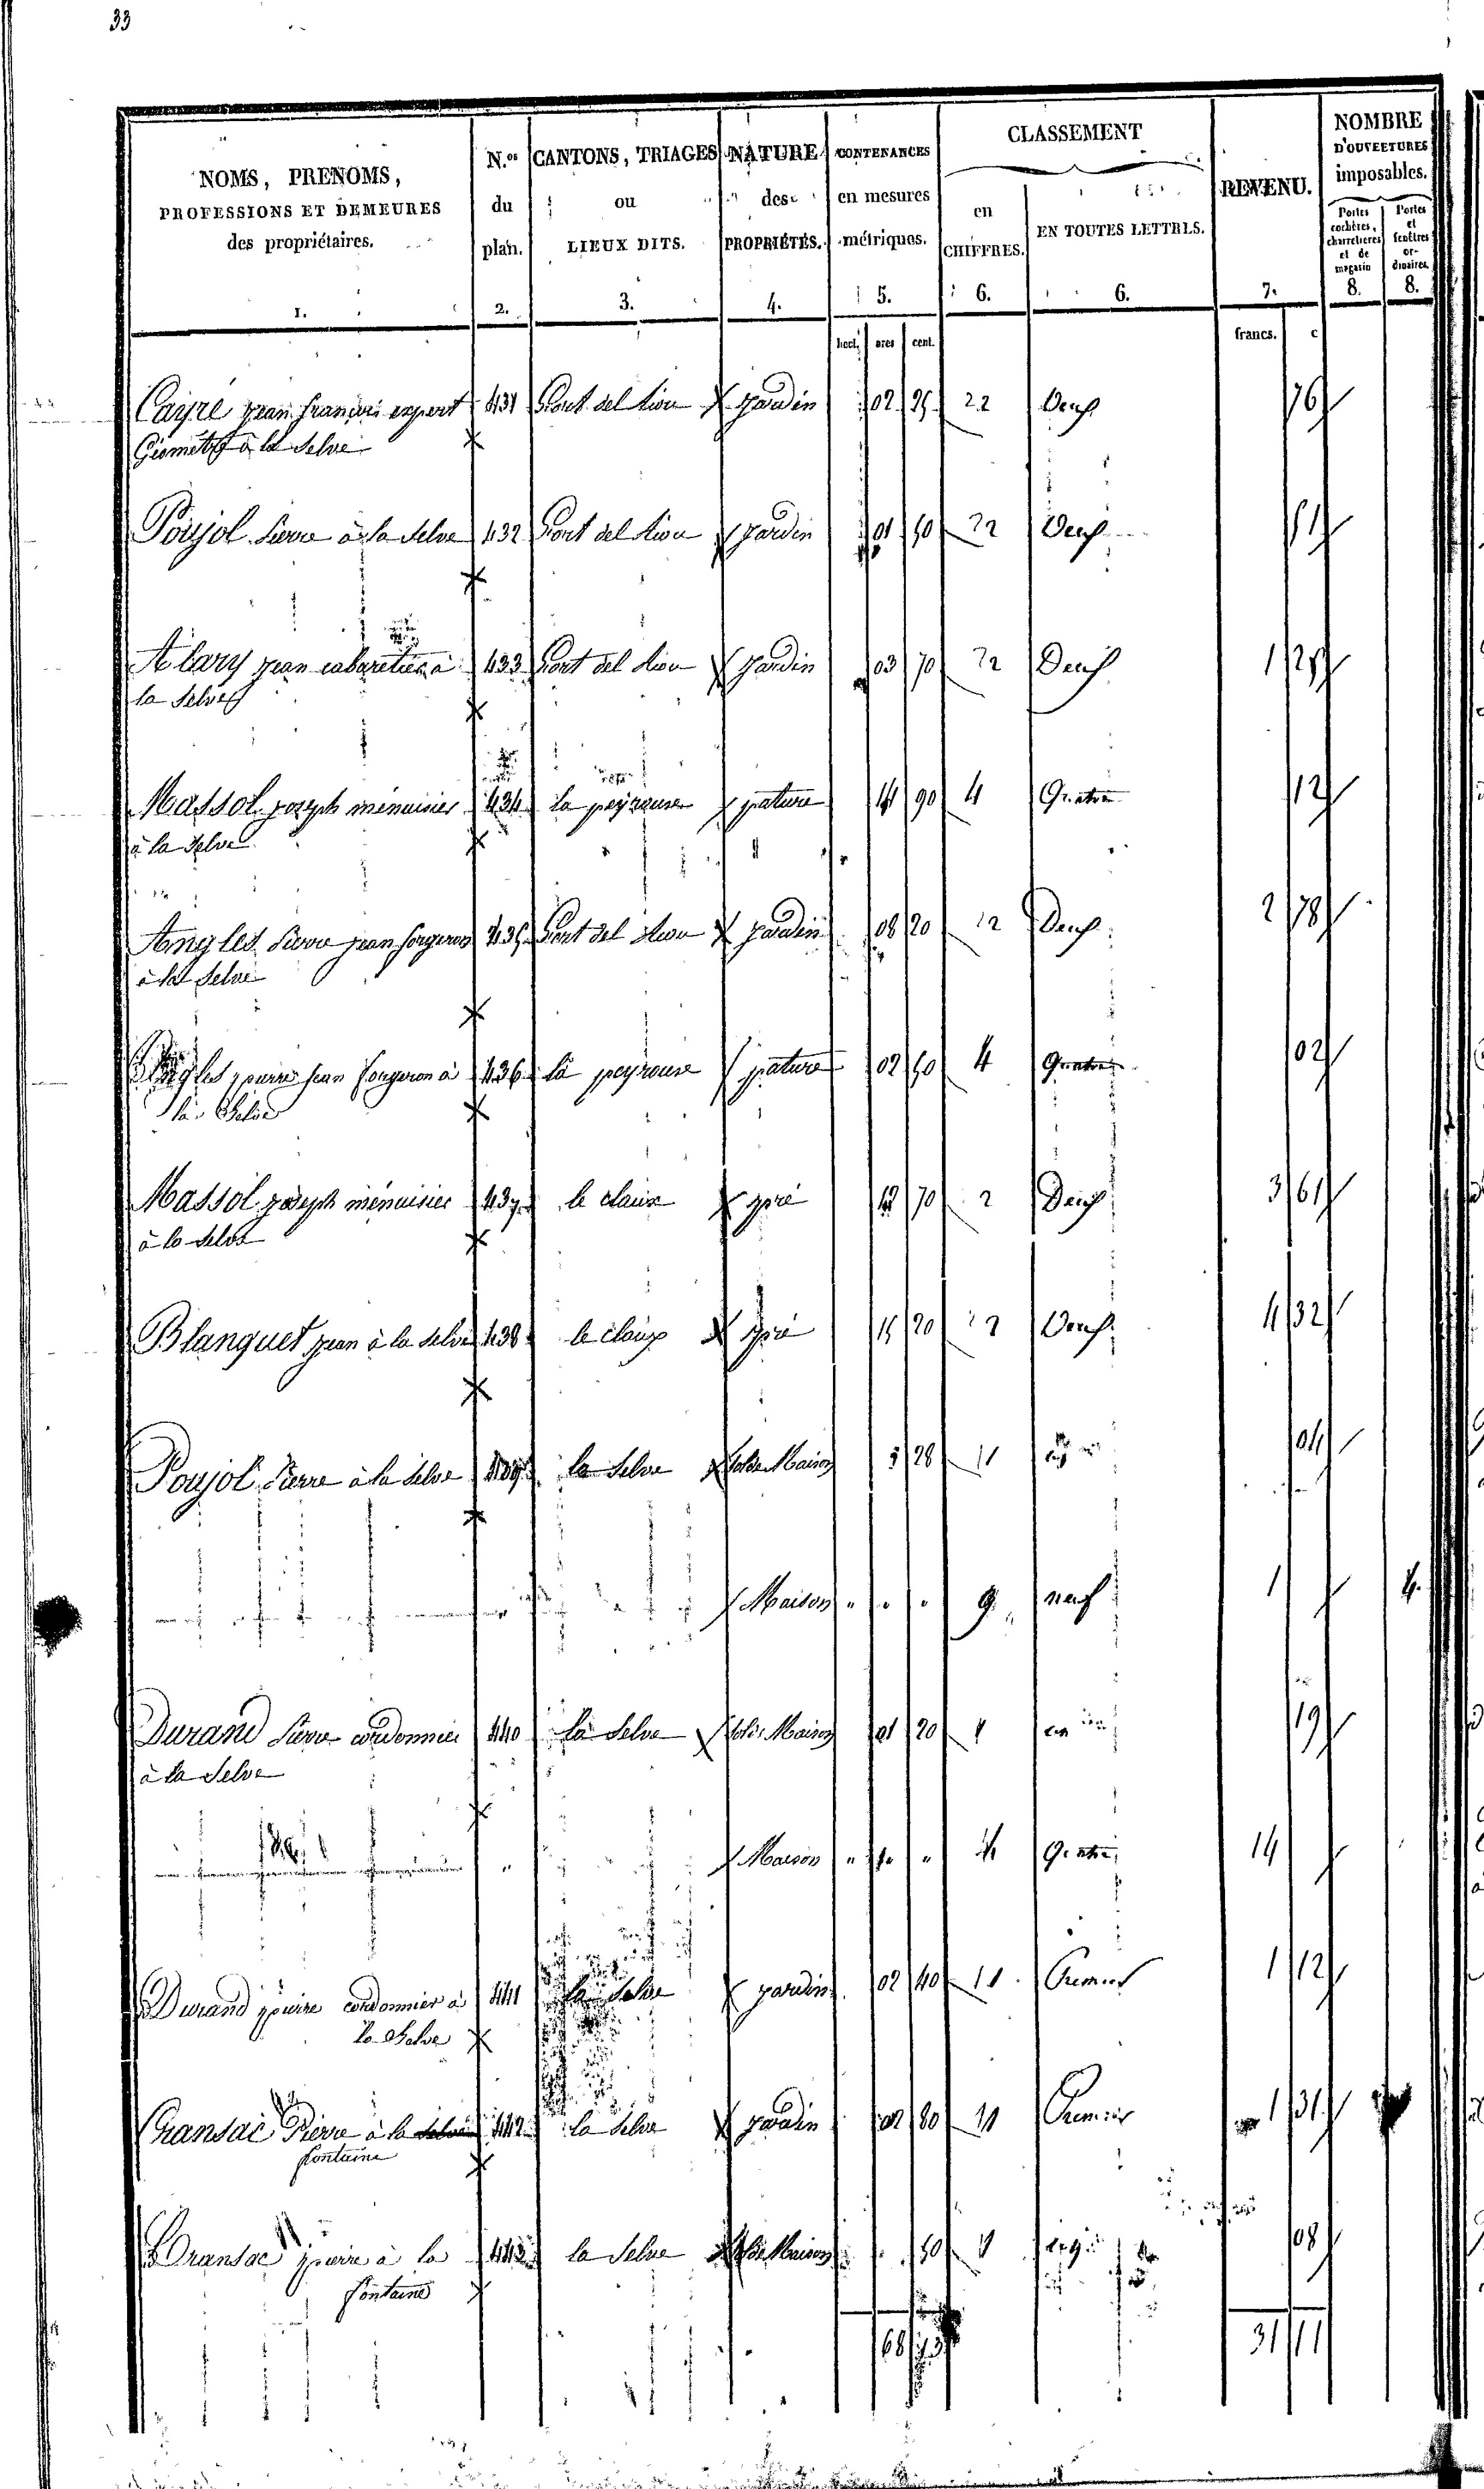 33
NOMS, PRENOMS, PROFESSIONS ET DEMEURES des propriétaires. 1.
N.os du plan. 2.
CANTONS, TRIAGES ou LIEUX DITS. 3.
NATURE des PROPRIÉTÉS. 4.
CONTENANCES en mesures métriques. 5.
CLASSEMENT
en CHIFFRES. 6.
EN TOUTES LETTRES. 6.
REVENU. 7.
NOMBRE D'OUVERTURES imposables.
Portes cochères, charretieres et de magasin 8.
Portes et fenêtres or-dinaires. 8.
hect. ares cent. francs. c
Cayré jean françois expert 431 jardin 02 25 22 Deux 76
Géomètre à la Selve
Poujol Pierre à la Selve 432 jardin 01 50 22 Deux 51
Alary jean cabaretier à 433 jardin 03 70 22 Deux 1 25
la Selve
Massol joseph menuisier 434 la peyrouse pature 14 90 4 Quatre 12
à la Selve
Angles Pierre jean forgeron 435 jardin 08 20 22 Deux 2 78
à la Selve
Angles pierre jean forgeron à 436 la peyrouse pature 02 50 4 Quatre 02
la Selve
Massol joseph menuisier 437 le claux pré 12 70 2 Deux 3 61
à la Selve
Blanquet jean à la Selve 438 le claux pré 15 20 2 Deux 4 32
Poujol Pierre à la Selve 439 la Selve Sol de Maison 28 04
Maison " " " 9 neuf 1 4
Durand Pierre cordonnier 440 la Selve Sol de Maison 01 20 19
à la Selve
Maison " " " 4 Quatre 14
Durand pierre cordonnier à 441 la Selve jardin 02 40 Premier 1 12
la Selve
Pierre à la 442 la Selve jardin 02 80 Premier 1 31
fontaine
pierre à la 443 la Selve Sol de Maison 50 08
fontaine
68 31 11